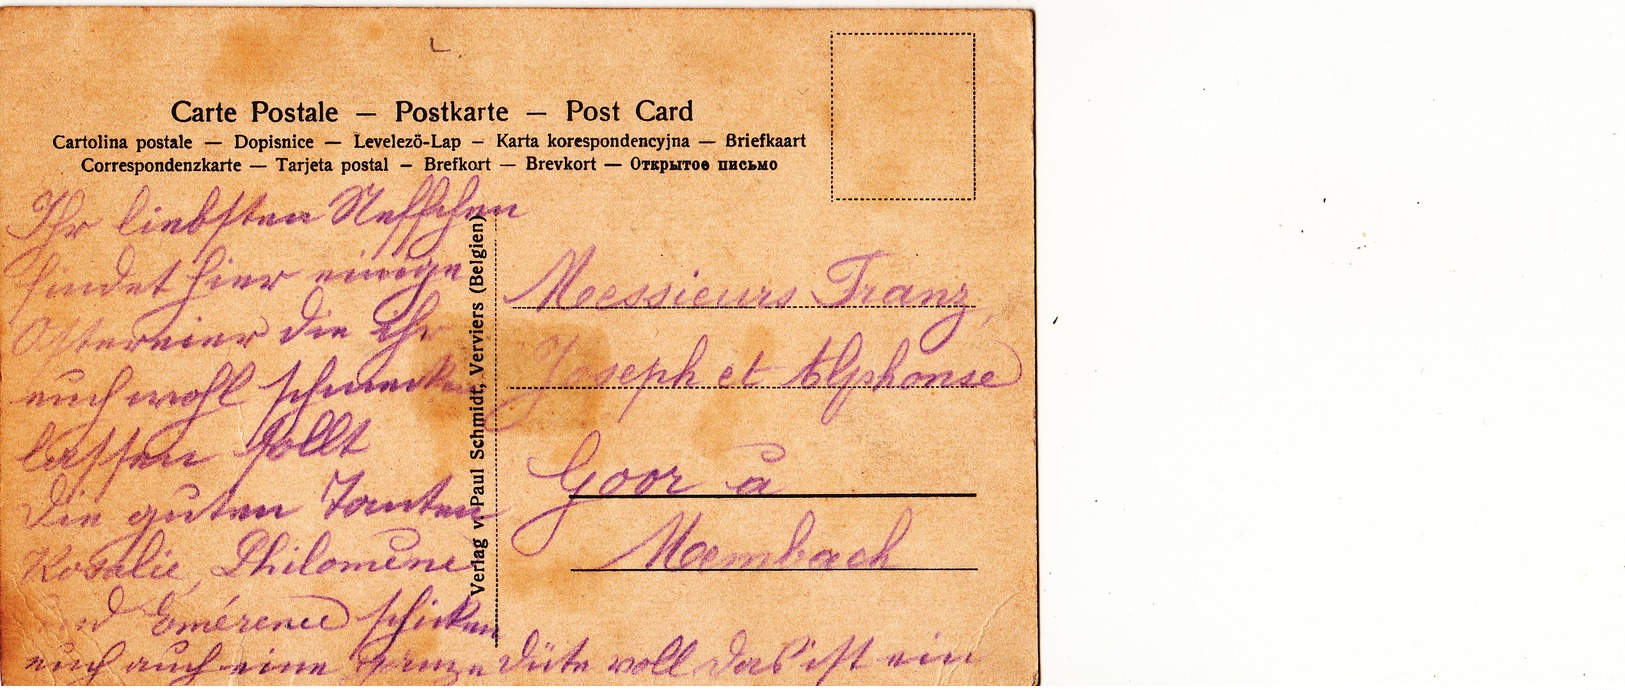 Carte Postale — Postkarte — Post Card
Cartolina postale — Dopisnice — Levelezö-Lap — Karta korespondencyjna — Briefkaart
Correspondenzkarte — Tarjeta postal — Brefkort — Brevkort — Открытое письмо
Ihr liebsten Neffchen
findet hier einige
Ostereier die ihr
euch wohl schmecken
lassen sollt
Die guten Tanten
Rosalie, Philomène
und Emérence schicken
euch auch eine ganze Düte voll das ist ein
Verlag v. Paul Schmidt, Verviers (Belgien)
Messieurs Franz,
Joseph et Alphonse
Goor à
Membach